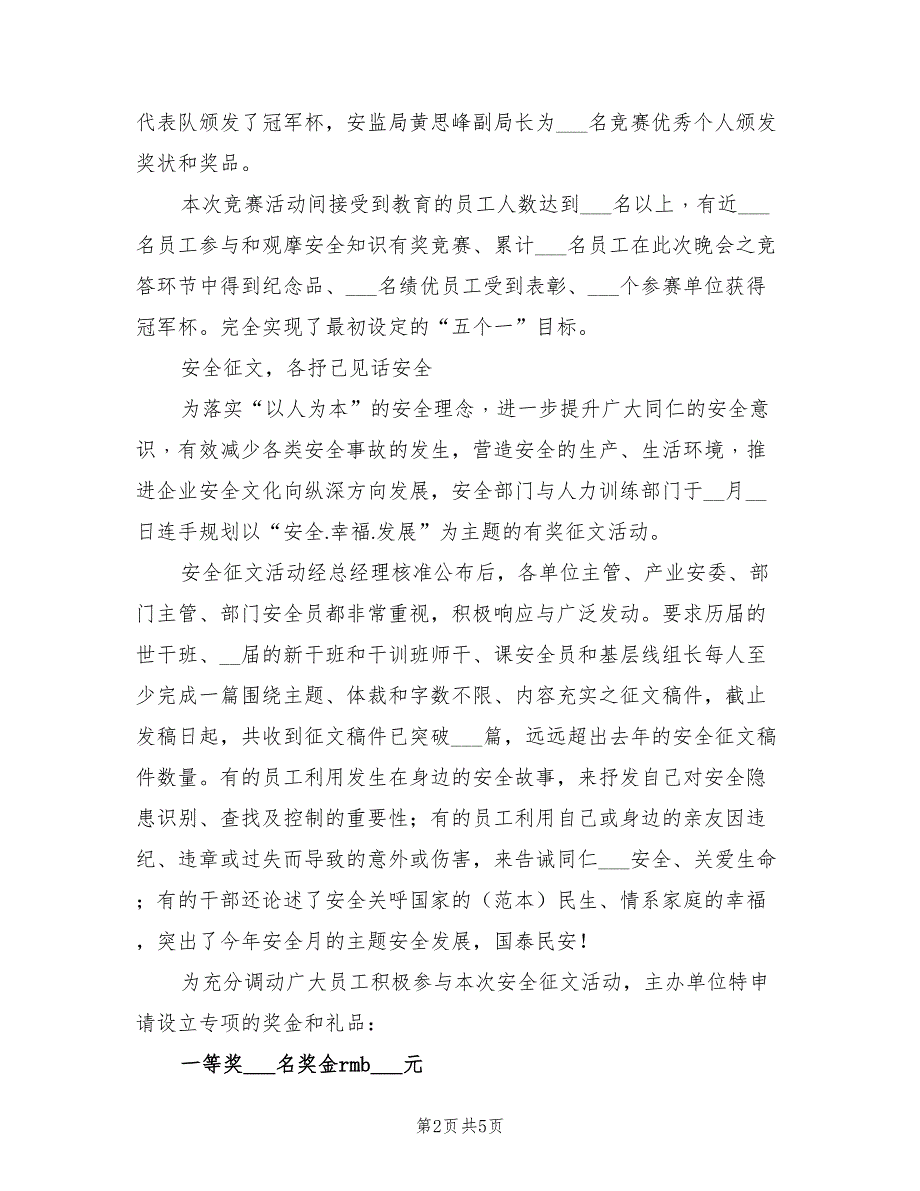 代表队颁发了冠军杯，安监局黄思峰副局长为___名竞赛优秀个人颁发
奖状和奖品。
本次竞赛活动间接受到教育的员工人数达到___名以上，有近___
名员工参与和观摩安全知识有奖竞赛、累计___名员工在此次晚会之竞
答环节中得到纪念品、___名绩优员工受到表彰、___个参赛单位获得
冠军杯。完全实现了最初设定的“五个一”目标。
安全征文，各抒己见话安全
为落实“以人为本”的安全理念，进一步提升广大同仁的安全意
识，有效减少各类安全事故的发生，营造安全的生产、生活环境，推
进企业安全文化向纵深方向发展，安全部门与人力训练部门于__月__
日连手规划以“安全.幸福.发展”为主题的有奖征文活动。
安全征文活动经总经理核准公布后，各单位主管、产业安委、部
门主管、部门安全员都非常重视，积极响应与广泛发动。要求历届的
世干班、__届的新干班和干训班师干、课安全员和基层线组长每人至
少完成一篇围绕主题、体裁和字数不限、内容充实之征文稿件，截止
发稿日起，共收到征文稿件已突破___篇，远远超出去年的安全征文稿
件数量。有的员工利用发生在身边的安全故事，来抒发自己对安全隐
患识别、查找及控制的重要性；有的员工利用自己或身边的亲友因违
纪、违章或过失而导致的意外或伤害，来告诫同仁___安全、关爱生命
；有的干部还论述了安全关呼国家的（范本）民生、情系家庭的幸福
，突出了今年安全月的主题安全发展，国泰民安！
为充分调动广大员工积极参与本次安全征文活动，主办单位特申
请设立专项的奖金和礼品：
一等奖___名奖金rmb___元
第2页共5页